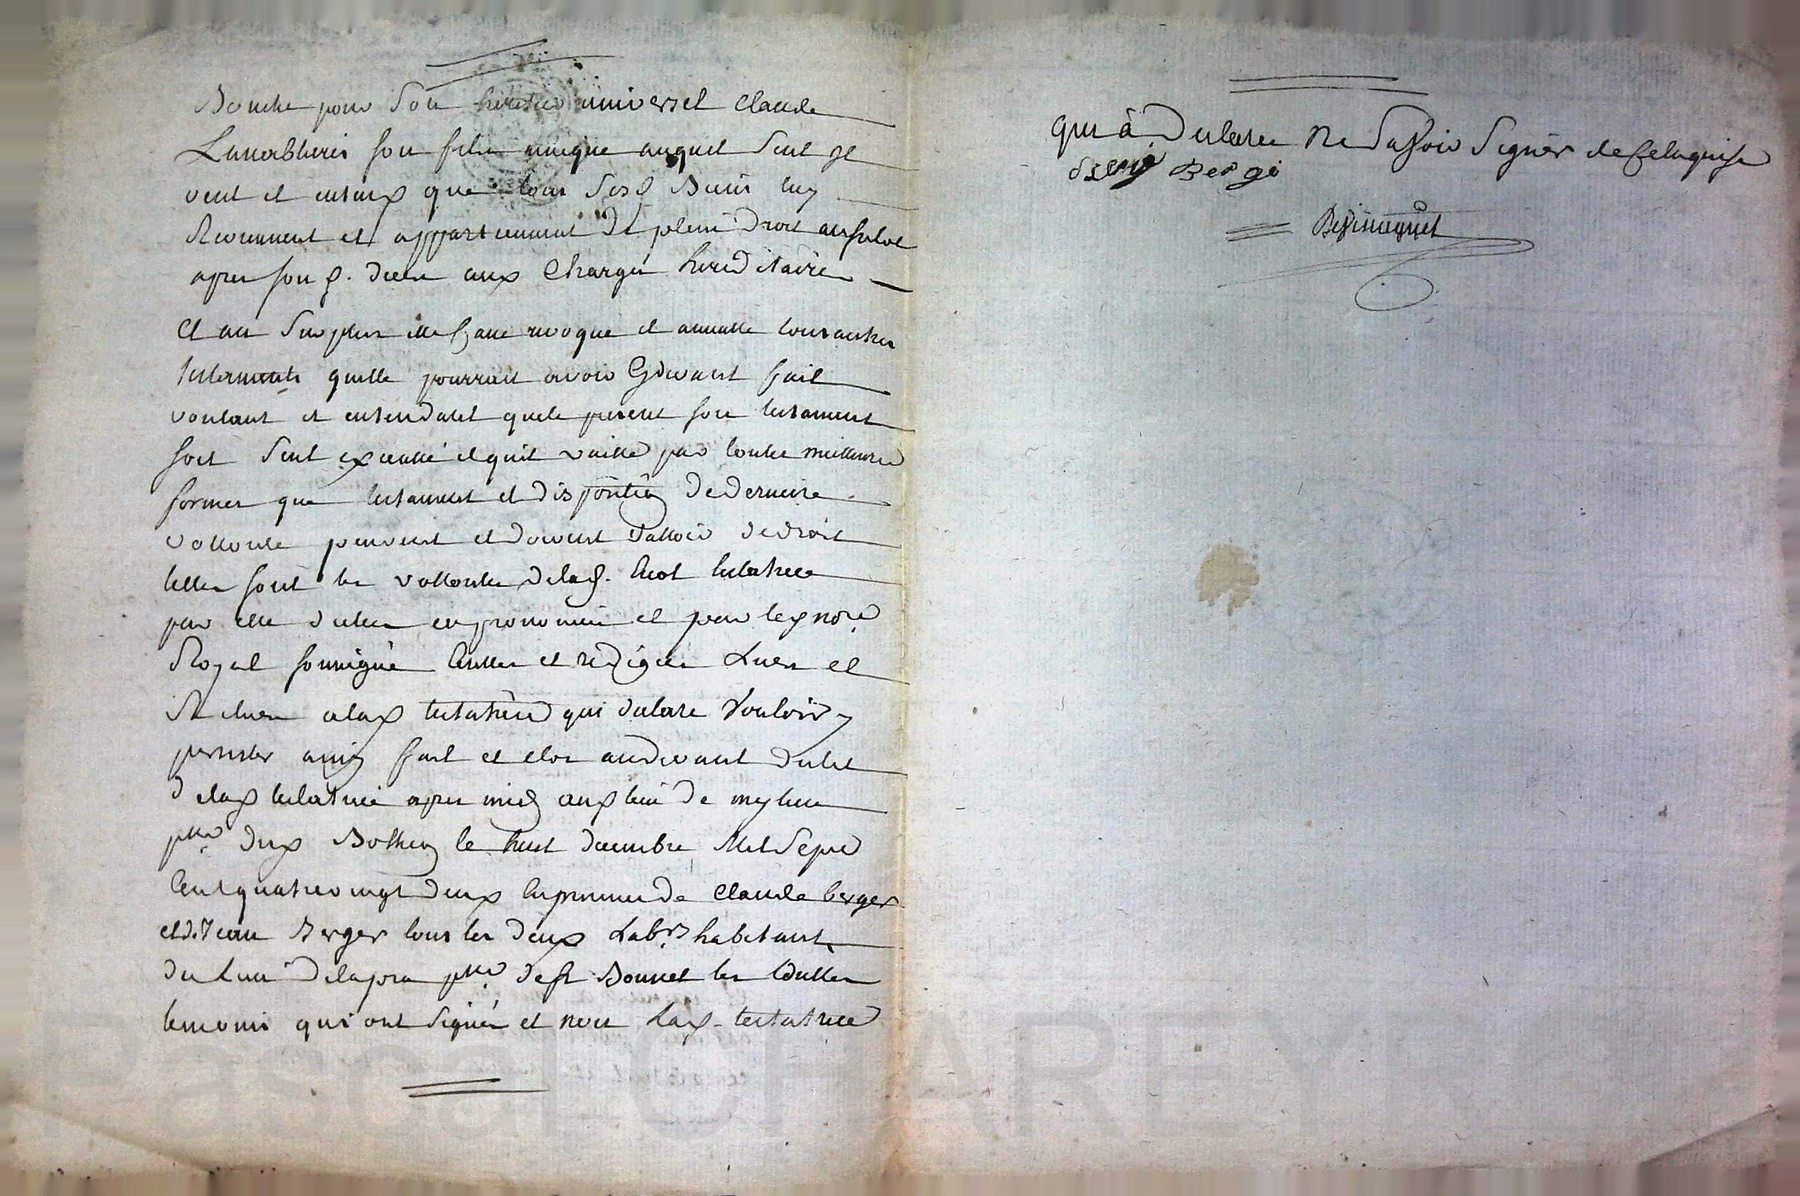 Bouche pour son heritier universel Claude
son fils unique auquel seul
veut et entend que tous ses d. Biens luy
Reviennent et appartiennent de plein droit
apres son d. deces aux Charges hereditaires
Et au surplus elle casse revoque et annulle tous autres
testaments quelle pourroit avoir Cydevant fait
voulant et entendant que le present son testament
soit seul executé et quil vaille par toutes meilleures
formes que testament et dispontion de derniere
vollonte peuvent et doivent valloir de droit
telles sont les vollontes de lad. testatrice
par elle dictees et par led nore
Royal soussigné et redigées Lues et
Relues a lad testatrice qui declare Vouloir y
persister ainsy fait et clos audevant du lit
de lad testatrice apres midy au lieu de
psse dud Bothey le huit decembre Mil Sept
Cent quatre vingt deux En presence de Claude berger
et de Jean Berger tous les deux Labrs habitants
du Lieu delapra psse de st Bonnet les
temoins qui ont Signés et non Lad. testatrice
qui à Declaree Ne Savoir Signer de ce enquise
Berge